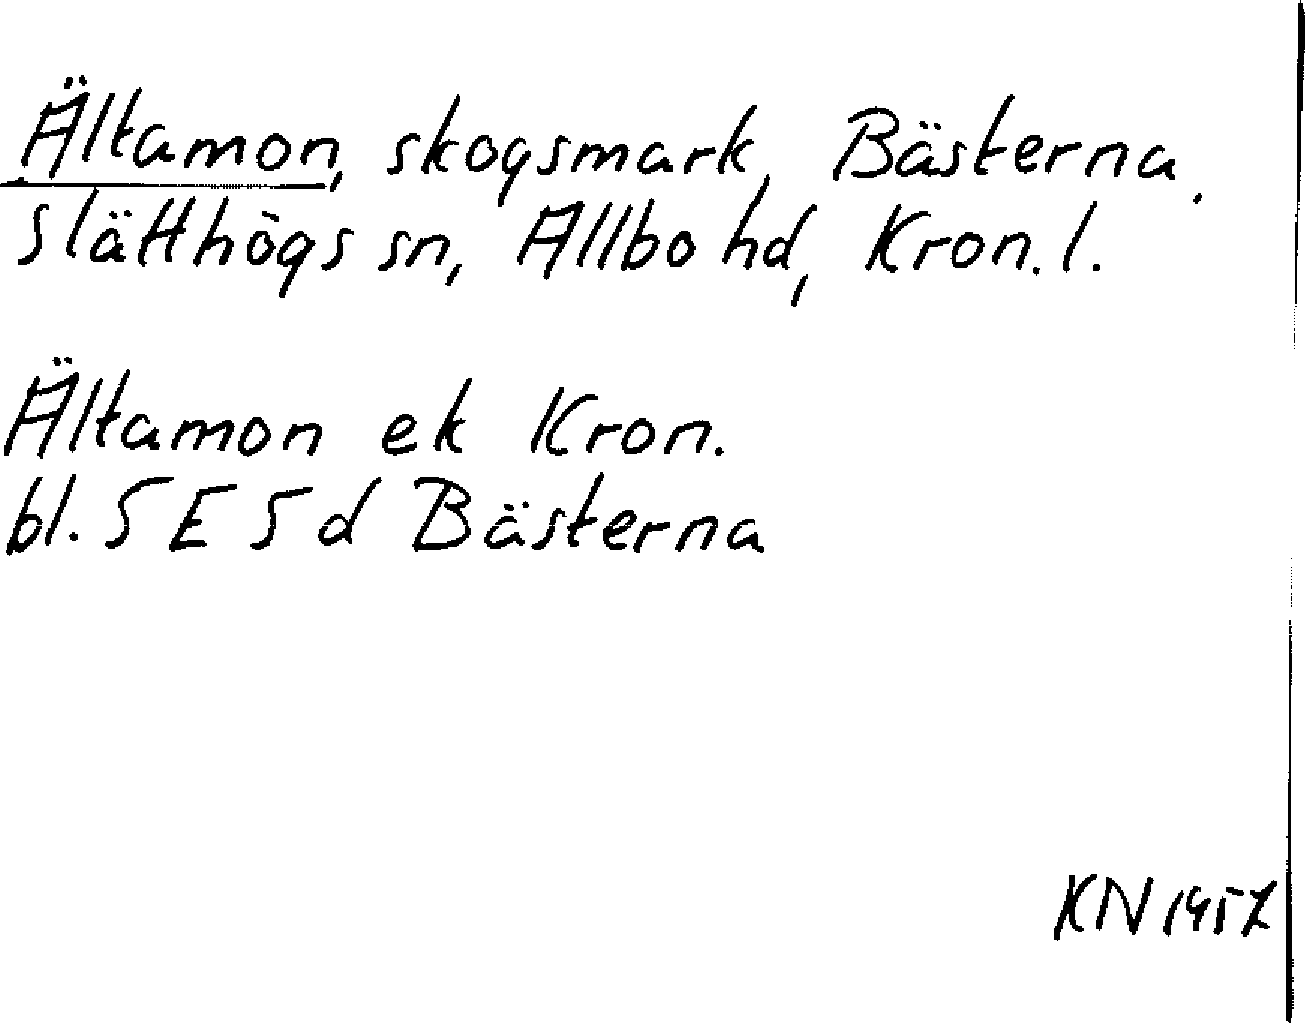 Ältamon, skogsmark, Bästerna,
Slätthögs sn, Allbo hd, Kron. l.
Ältamon ek Kron.
bl. 5 E 5 d Bästerna
KN 1957